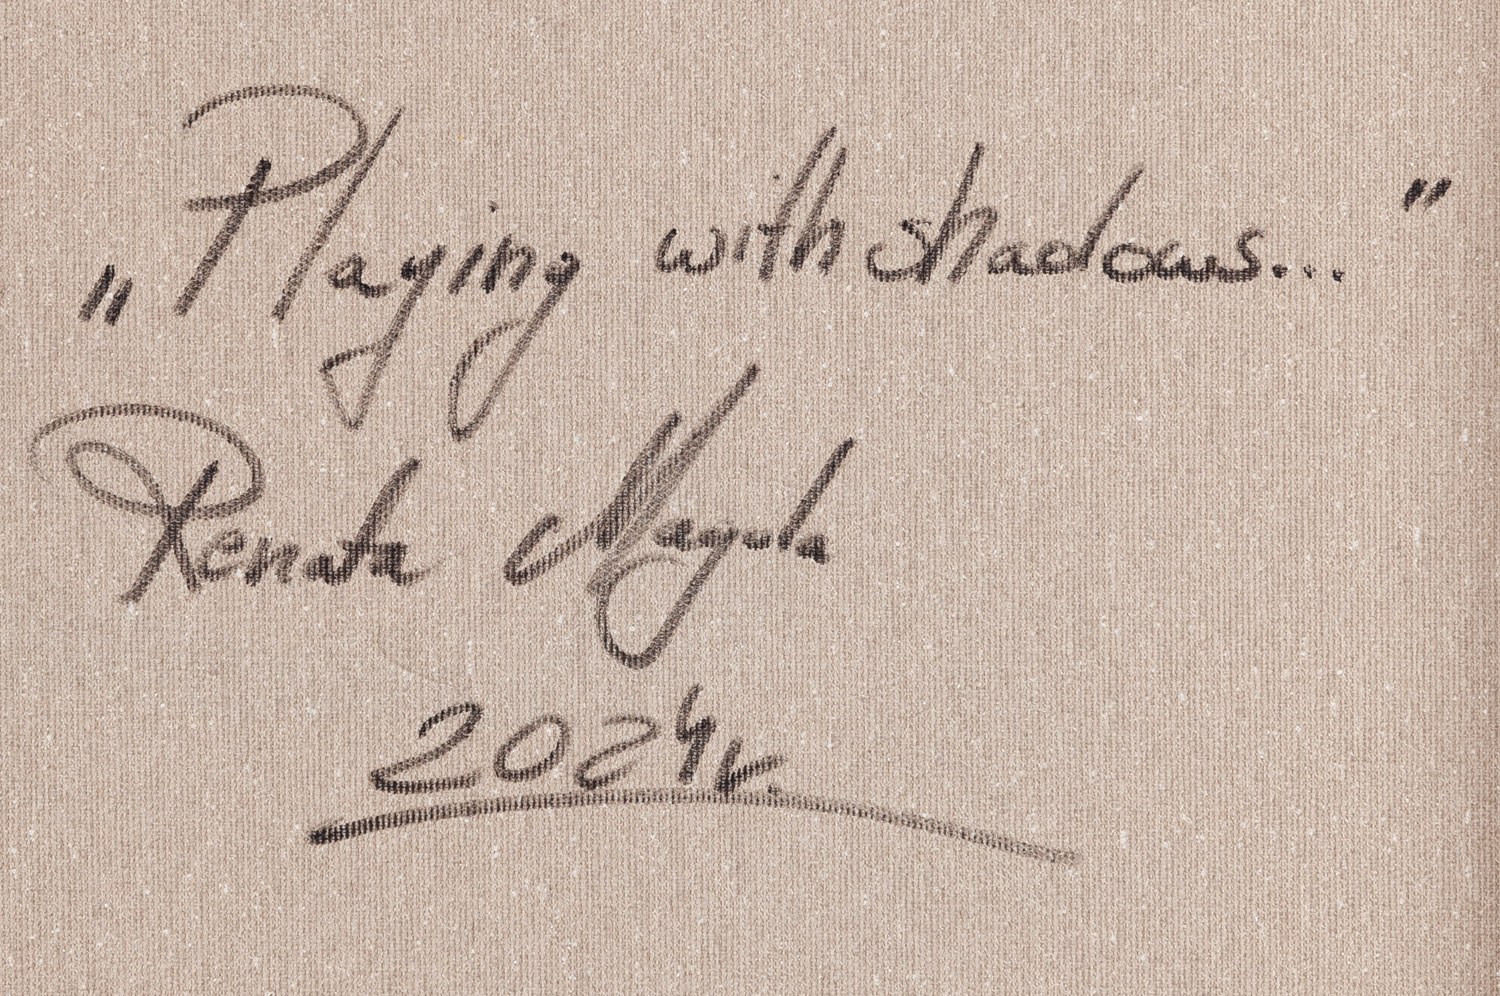 „Playing with shadows..."
Renata Magda
2024r.